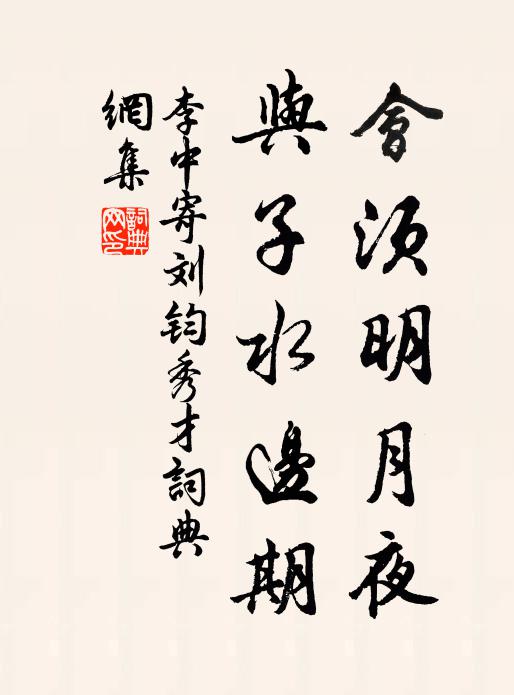 會須明月夜
與子水邊期
李中寄刘鈞秀才詞典
網集
詞典
网印